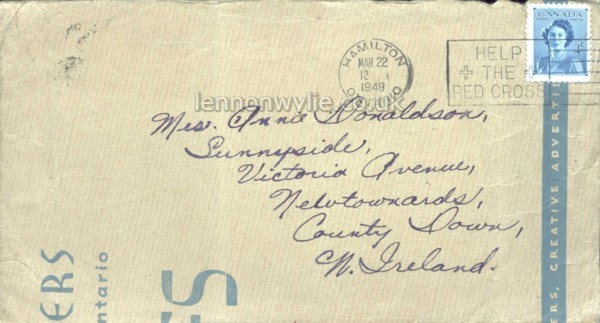 CANADA
4
HAMILTON
MAR 22
12
1948
ONTARIO
HELP
+ THE +
RED CROSS
lennonwylie.co.uk
Mrs. Annie Donaldson,
Sunnyside,
Victoria Avenue,
Newtownards,
County Down,
N. Ireland.
ERS
ntario
ES
ERS, CREATIVE ADVERTIS